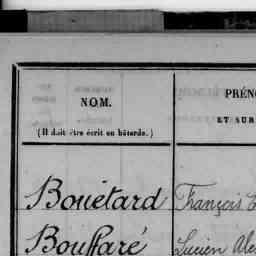 NOM. PRÉN
(Il doit être écrit en bâtarde.) ET SUR
Bouëtard François
Bouffaré Lucien Ale